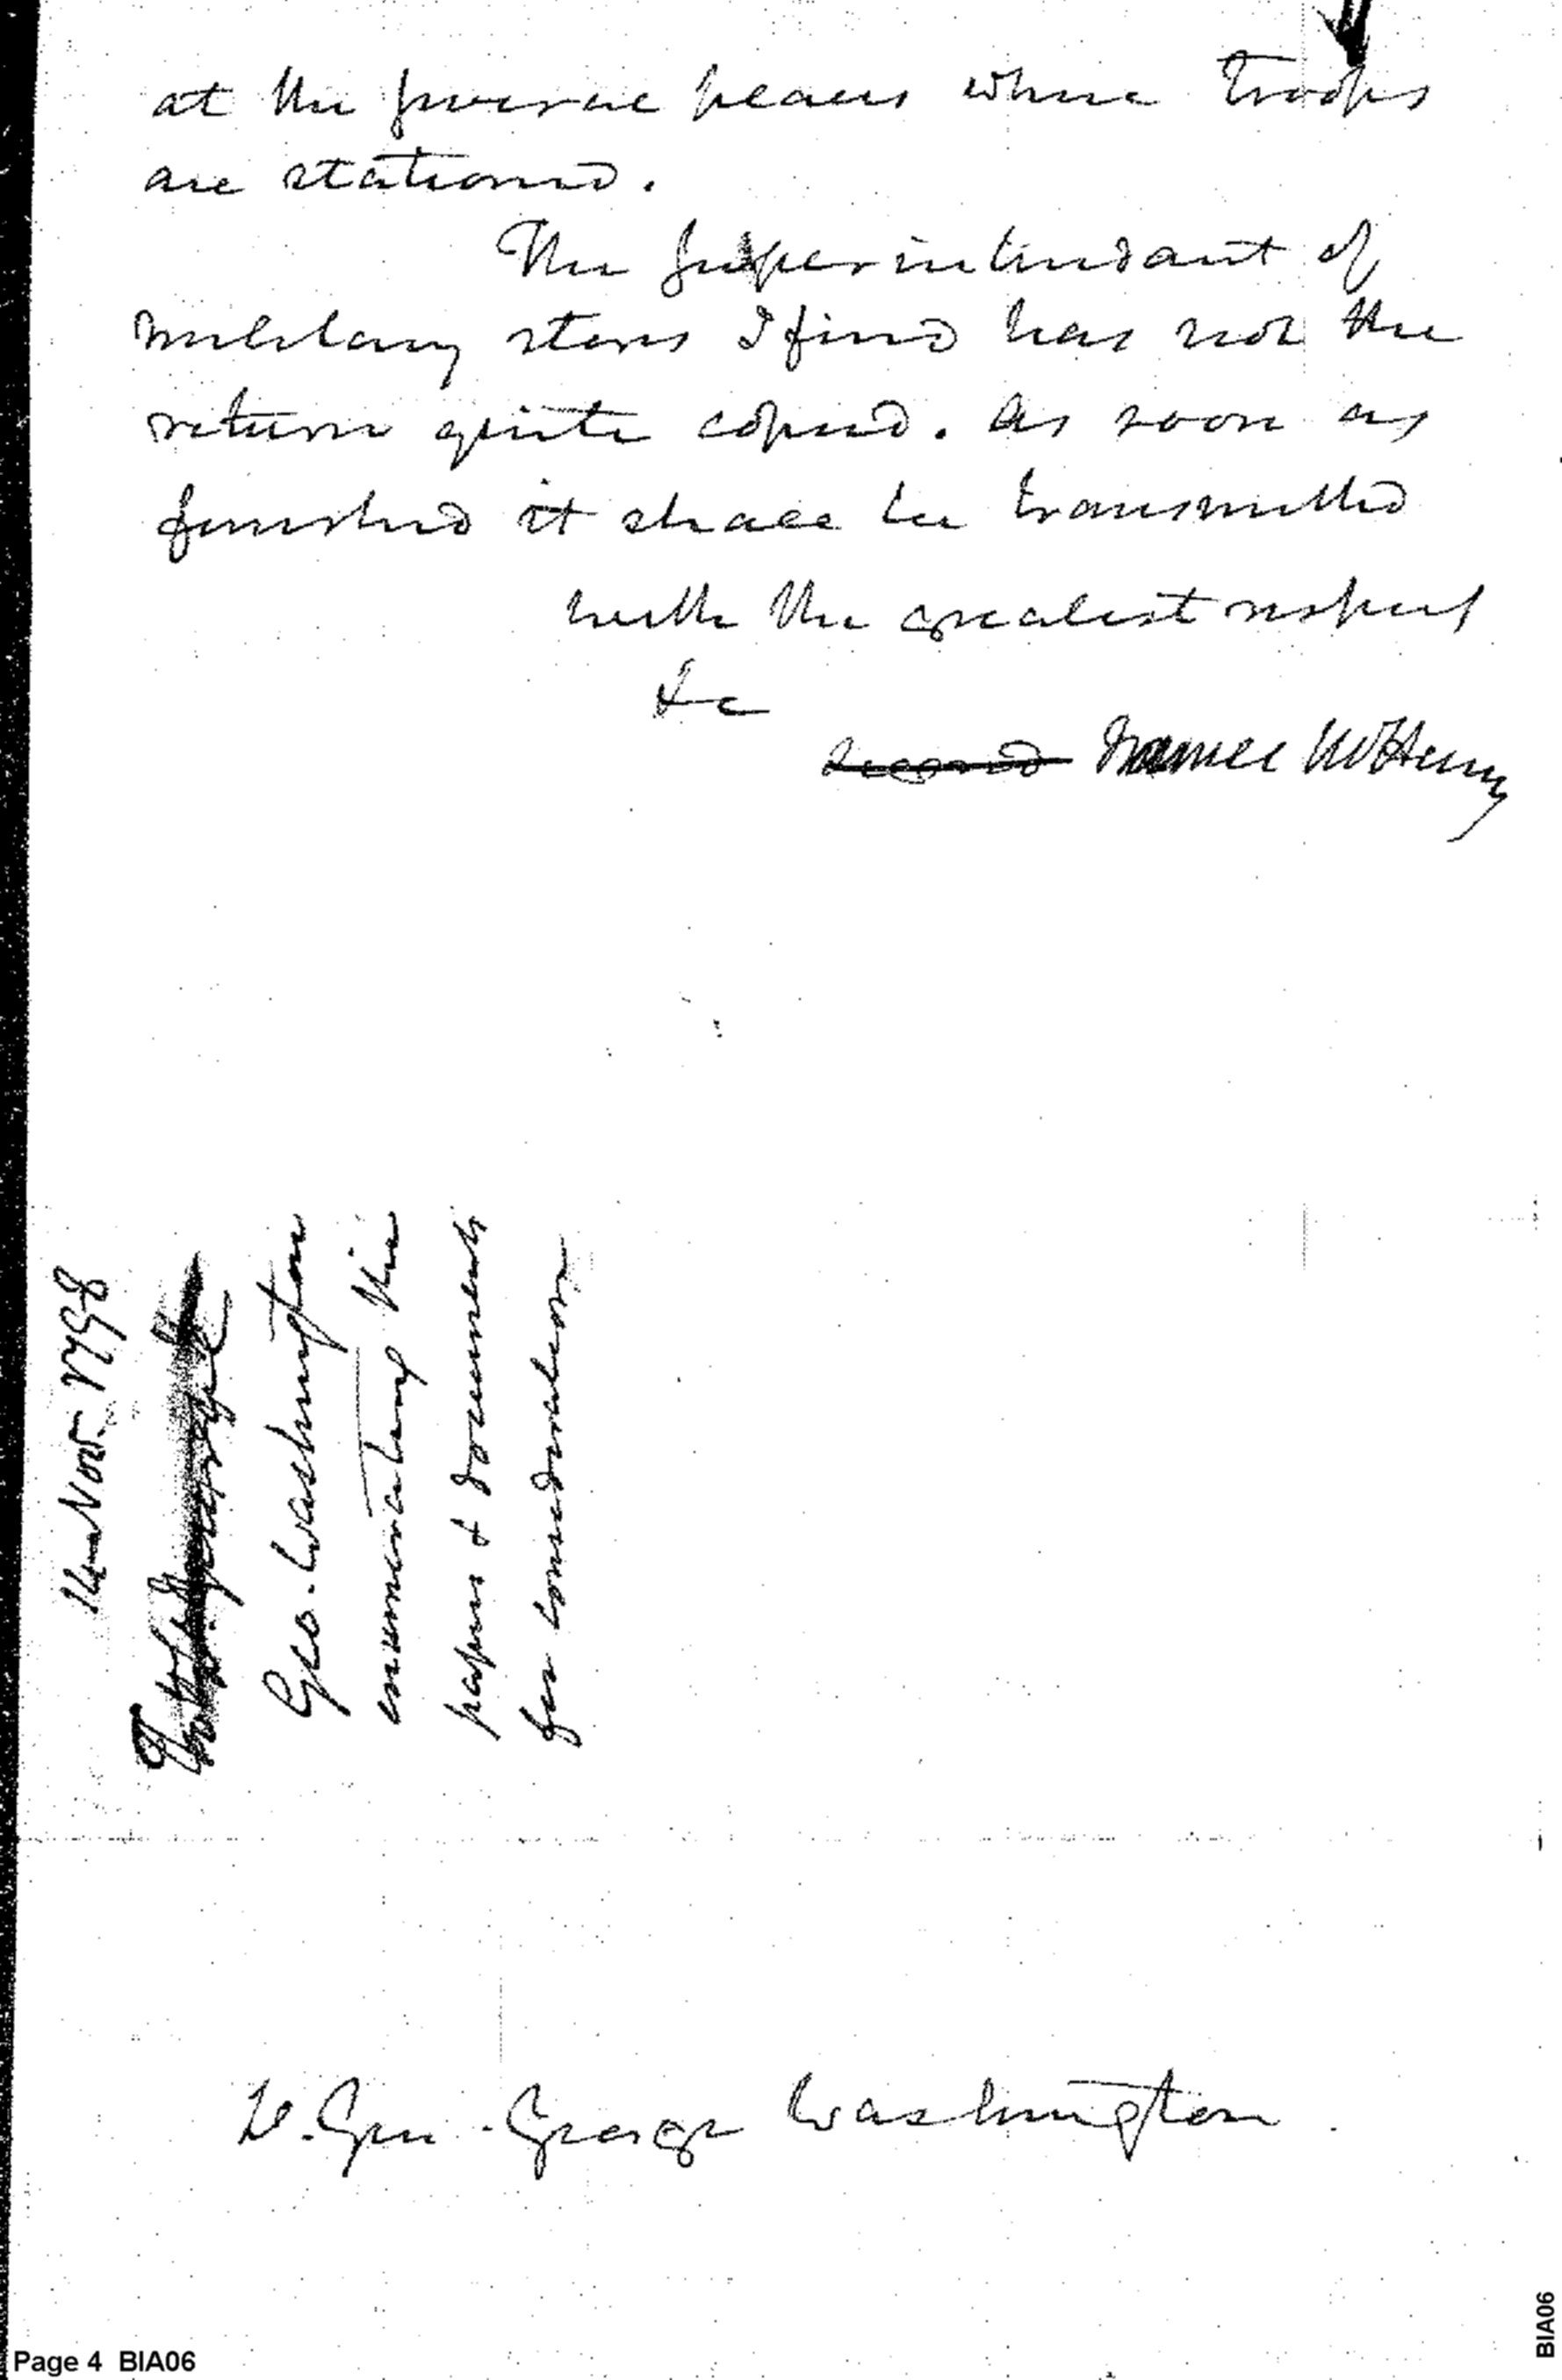 at the several places where troops
are stationed.
The Superintendant of
military stores I find has not the
return quite copied. As soon as
finished it shall be transmitted
with the greatest respect
&c
James McHenry
14 Nov. 1798
Geo. Washington
enumerating the
papers & documents
for consideration
Lt. Gen. George Washington
Page 4 BIA06
BIA06